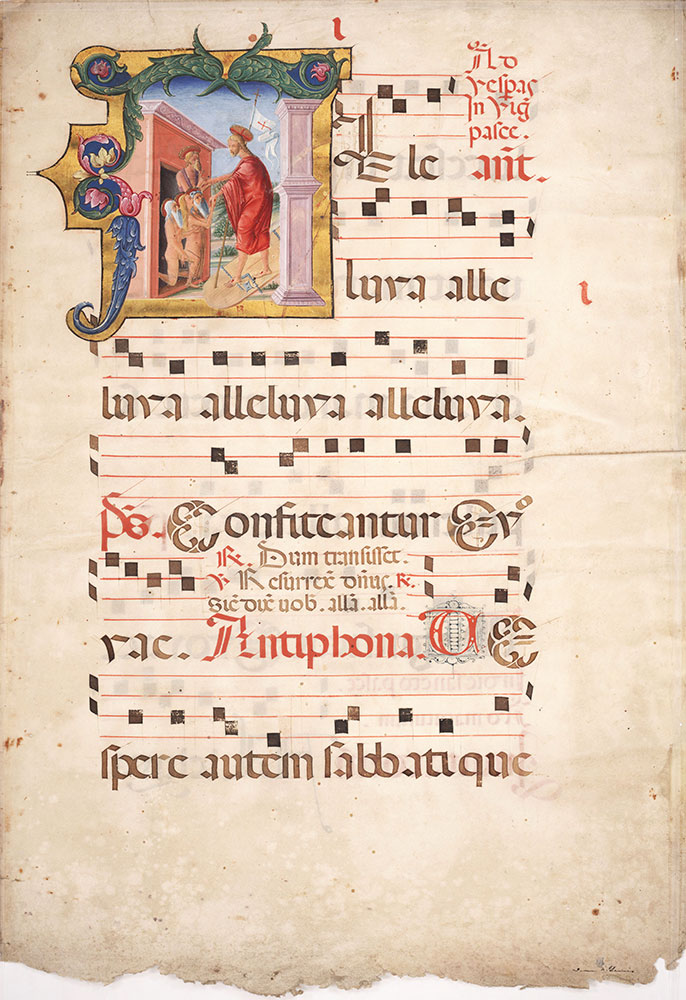 Ad
vesp̄as
In vig̃
pasce.
Ale ant̃.
luya alle
luya alleluya alleluya.
p̃s. Confiteantur E v̊
R̃. Dum transisset.
V̶ Resurrex̃ dñus R̃.
Sic̃ dix̃ vob. all̃a. all̃a.
vae. Antiphona. VE
spere autem sabbati que